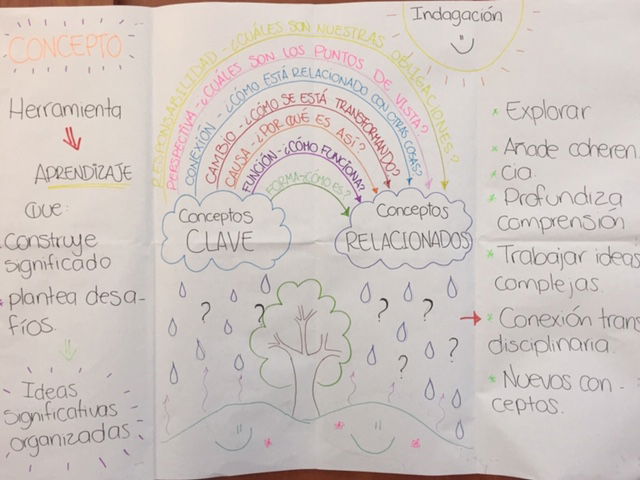 CONCEPTO
Herramienta
APRENDIZAJE
QUE:
construye
significado
* plantea desa-
fíos.
Ideas
significativas
organizadas
Indagación
RESPONSABILIDAD - ¿CUÁLES SON NUESTRAS OBLIGACIONES?
PERSPECTIVA - ¿CUÁLES SON LOS PUNTOS DE VISTA?
CONEXIÓN - ¿CÓMO ESTÁ RELACIONADO CON OTRAS COSAS?
CAMBIO - ¿CÓMO SE ESTÁ TRANSFORMANDO?
CAUSA - ¿POR QUÉ ES ASÍ?
FUNCIÓN - ¿CÓMO FUNCIONA?
FORMA - ¿CÓMO ES?
Conceptos
CLAVE
Conceptos
RELACIONADOS
? ? ? ? ? ?
* Explorar
* Añade coheren
* cia.
* Profundiza
comprensión
* Trabajar ideas
complejas.
* Conexión trans
disciplinaria.
* Nuevos con -
ceptos.